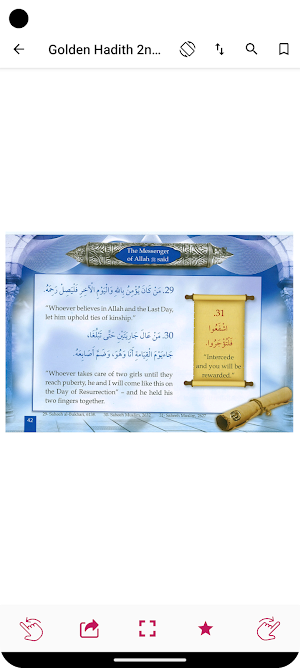 Golden Hadith 2n...
The Messenger
of Allah ﷺ said
29. مَنْ كَانَ يُؤْمِنُ بِاللهِ وَالْيَوْمِ الْآخِرِ فَلْيَصِلْ رَحِمَهُ.
"Whoever believes in Allah and the Last Day,
let him uphold ties of kinship."
30. مَنْ عَالَ جَارِيَتَيْنِ حَتَّى تَبْلُغَا،
جَاءَ يَوْمَ الْقِيَامَةِ أَنَا وَهُوَ، وَضَمَّ أَصَابِعَهُ.
"Whoever takes care of two girls until they
reach puberty, he and I will come like this on
the Day of Resurrection" – and he held his
two fingers together.
31.
اشْفَعُوا
فَلْتُؤْجَرُوا.
"Intercede
and you will be
rewarded."
42